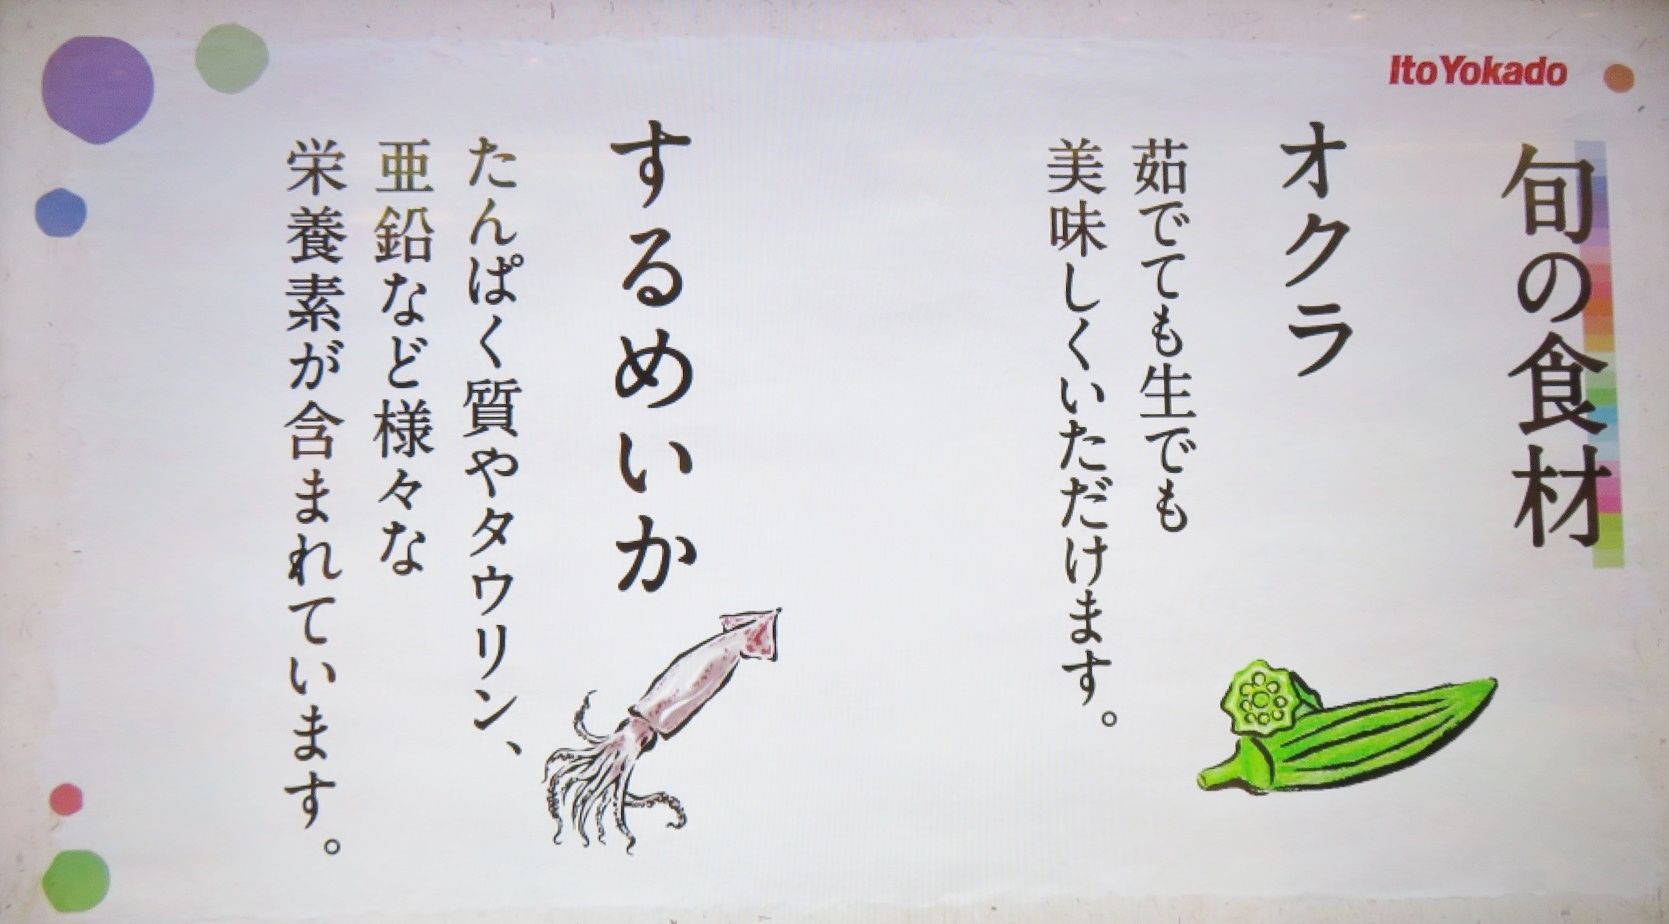 Ito Yokado
旬の食材
オクラ
茹でても生でも
美味しくいただけます。
するめいか
たんぱく質やタウリン、
亜鉛など様々な
栄養素が含まれています。